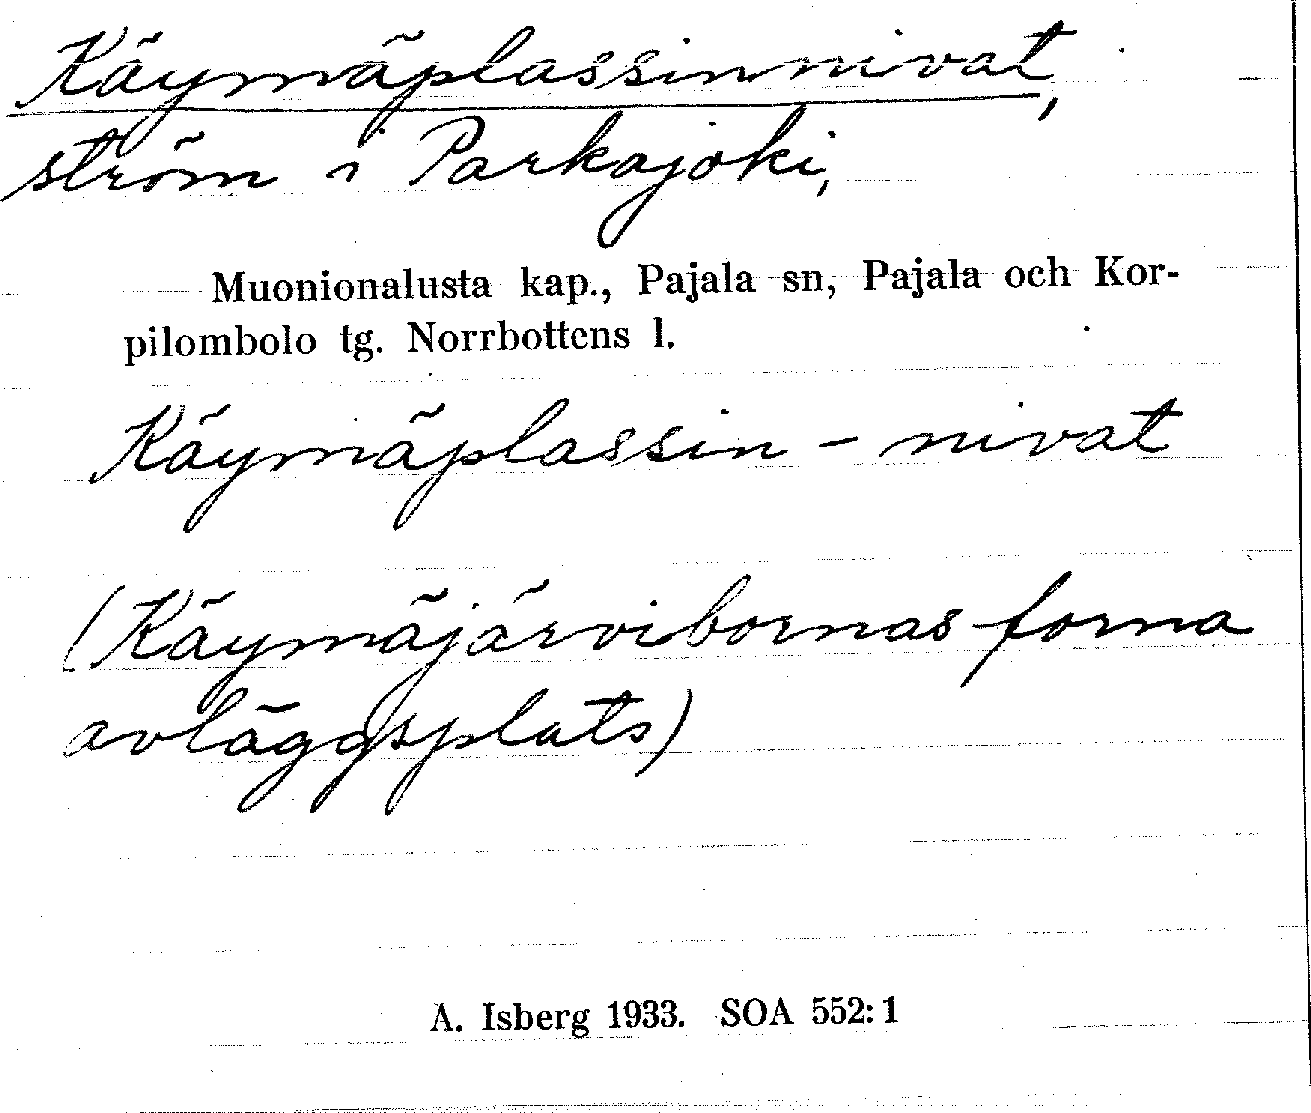 Käymäplassinnivat,
ström i Parkajoki,
Muonionalusta kap., Pajala sn, Pajala och Kor-
pilombolo tg. Norrbottens l.
Käymäplassin - nivat
(Käymäjärvibornas forna
avläggsplats)
A. Isberg 1933. SOA 552:1